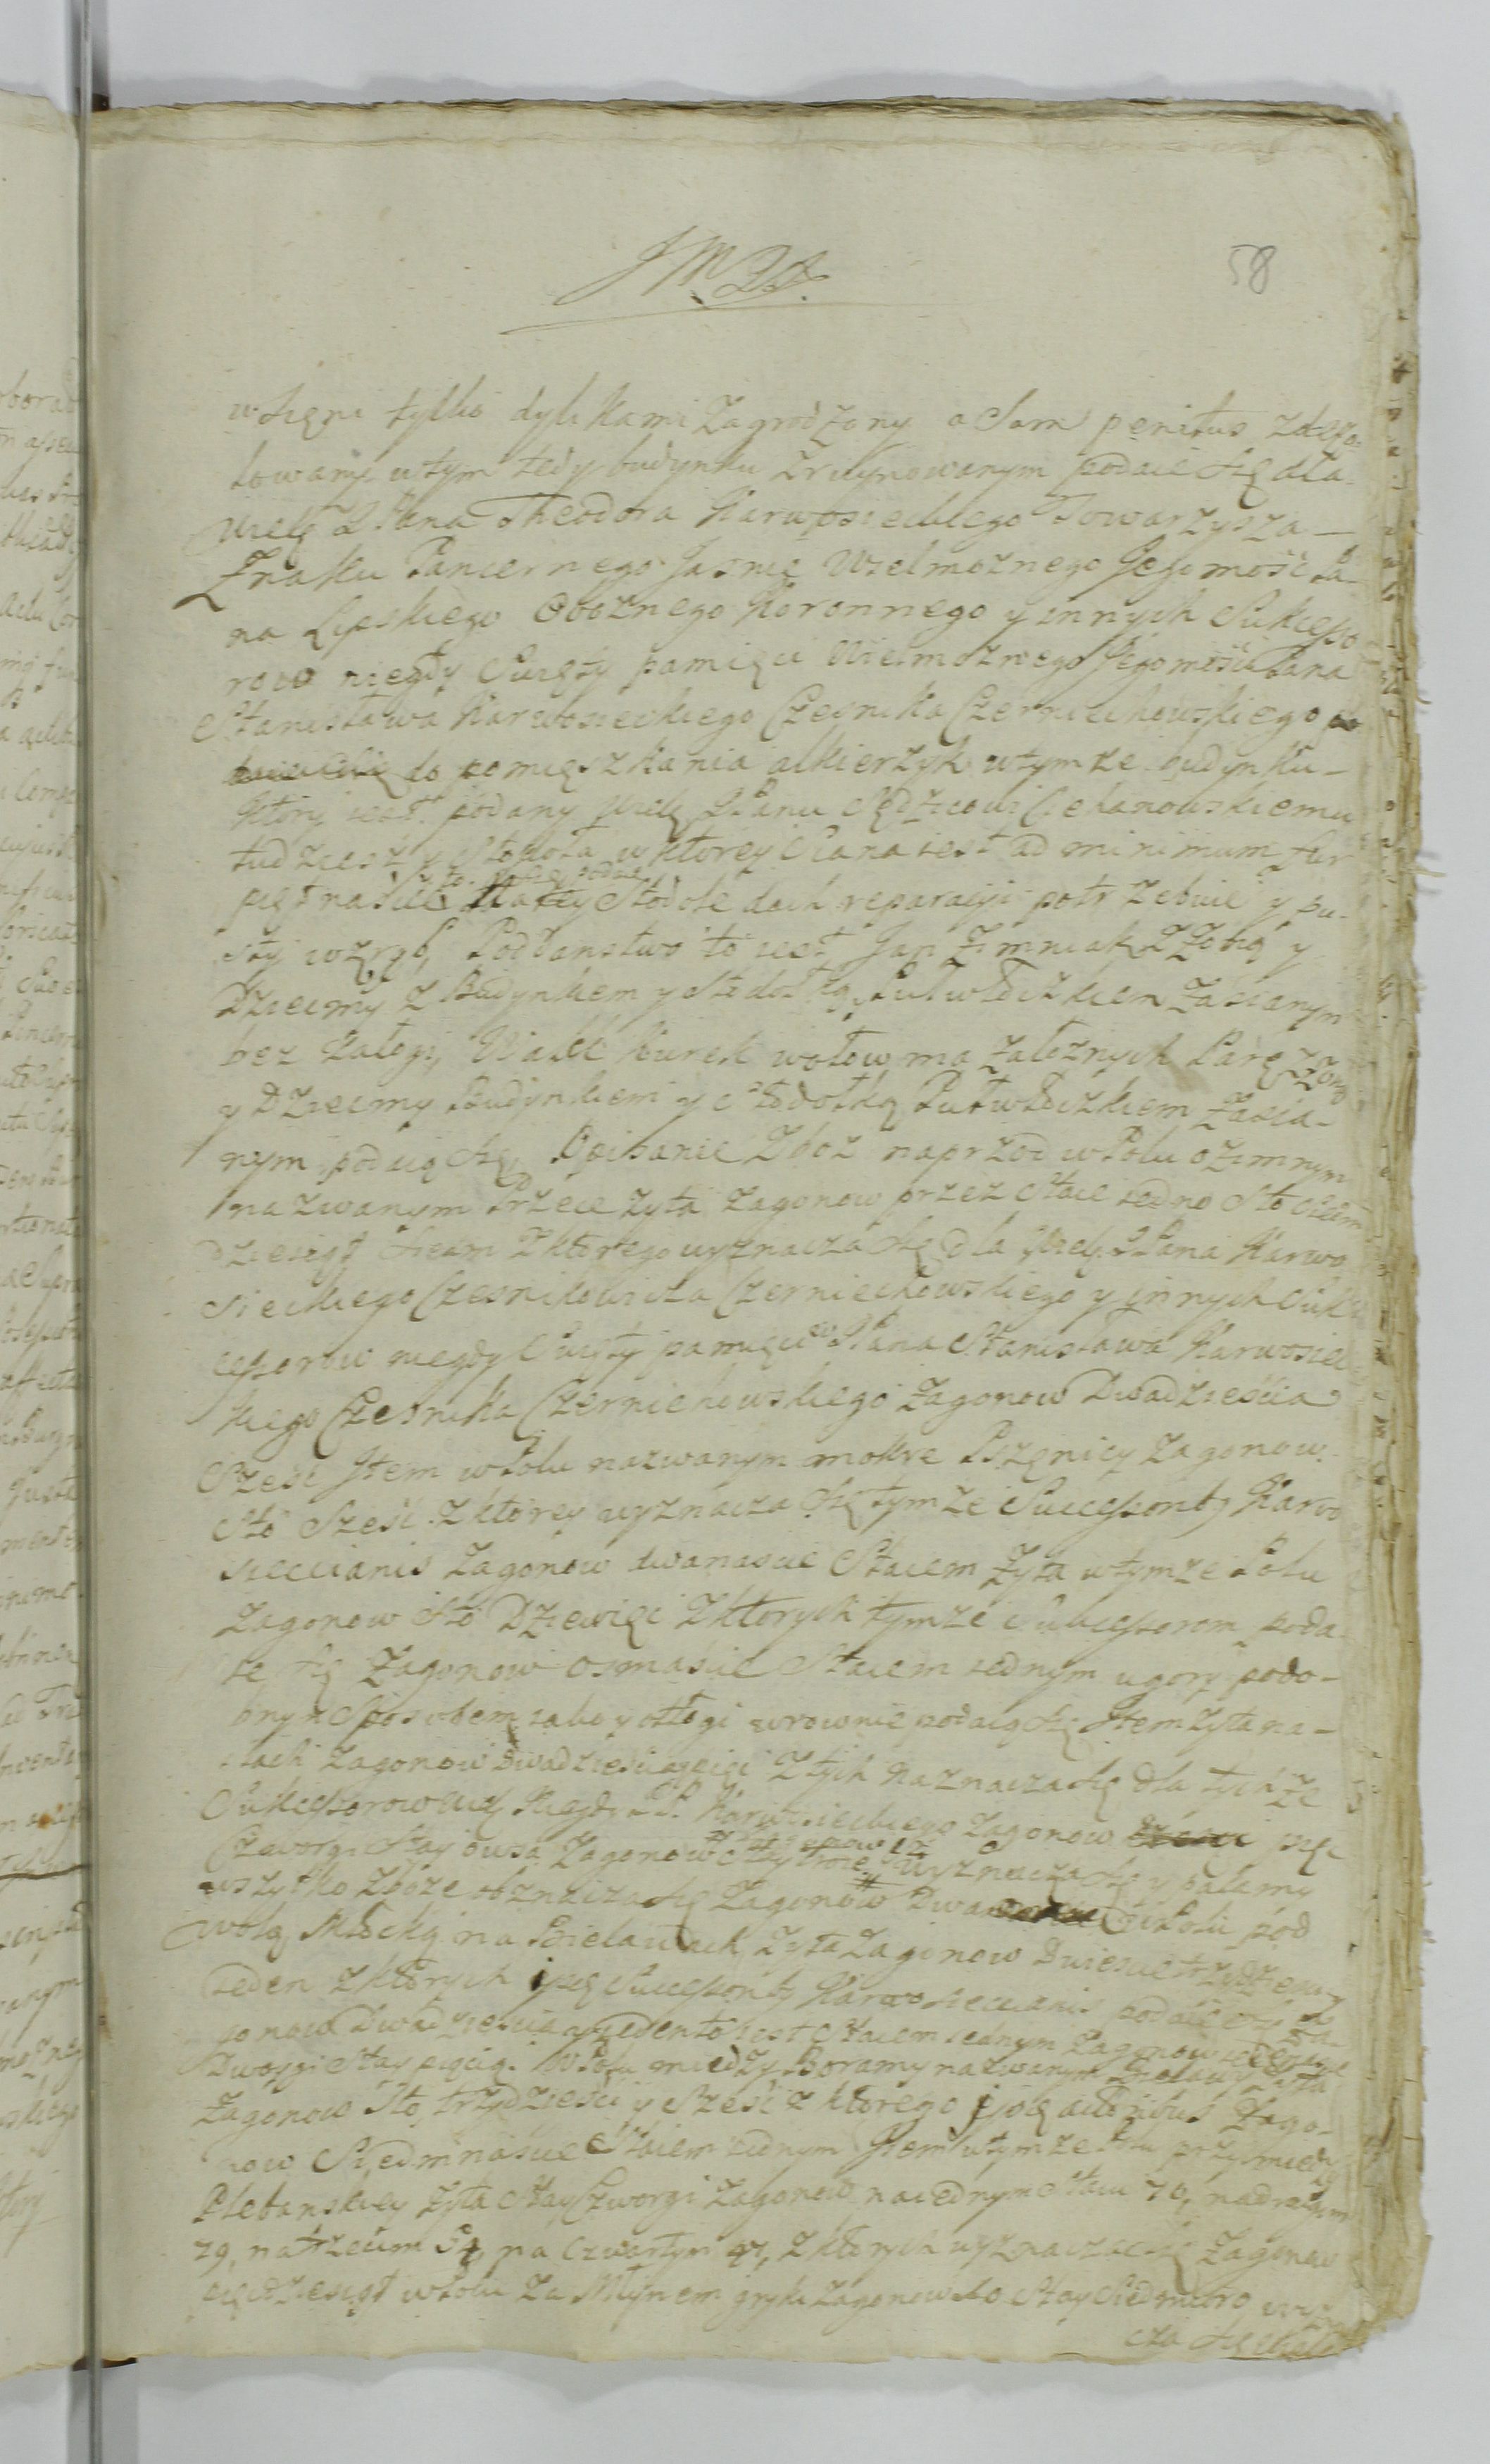 58
w sięni tylko dylikami zagrodzony a sam penitus zdezo-
lowany w tym tedy budynku zruynowanym podaie się dla
Wielę Pana Theodora Karwosieckiego Towarzysza
Znaku Pancernego Jasnie Wielmoznego Jegomosci Pa-
na Lipskiego Oboznego Koronnego y innych Sukcesso
row niegdy Swięty pamięci Wielmoznego Jegomosci Pana
Stanisława Karwosieckiego Czesnika Czerniechowskiego
do pomięszkania alkierzyk w tymze budynku
ktory iest podany Wielę Panu Sędzicowi Ciechanowskiemu
tudziesz y Stodoła w ktorey Siana iest ad minimum fur
pięтnascie Stodole dach reparacyi potrzebuie y pu-
sty wzrąb, Poddanstwo to iest Jan Zimniak z Zoną y
Dziecmy z Budynkiem y Stodołką Pułwłoczkiem zasianym
bez załogi, Kurek wołow ma załoznych Parę z Zoną
y Dziecmy Budynkiem y Stodołką Pułwłoczkiem Zasia-
nym podaią się, Opisanie Zboz naprzod w Polu ozimnym
nazwanym żyta zagonow przez Staie iedno Sto osiem
dziesiąt siedm z ktorego wyznacza się dla Wielę Pana Karwo
sieckiego Czesnikowicza Czerniechowskiego y innych Suk
cessorow niegdy Swięty pamięci Pana Stanisława Karwosiec
kiego Czesnika Czerniechowskiego zagonow Dwadziescia
Szesc Item w Polu nazwanym mokre Pszęnicy zagonow
sto szesc z ktorey wyznacza się tymze Successoribus Karwo
siecianis zagonow dwanascie Staiem Zyta w tymze Polu
zagonow sto Dziewięc z ktorych tymze Sukcessorom poda
ie się zagonow osmascie Staiem iednym ugory podo-
bnym sposobem y odłogi wrownie podaią się Item zyta na
zagonow dwadziescia pięc z tych naznacza się dla tychze
Sukcessorow Karwosieckiego zagonow pięc
Czworgi Stay owsa zagonow wyznacza się y
wszytko zboze zagonow w Polu pod
wolą na Bielawach zyta zagonow dwiescie trzydziesci
ieden z ktorych Successoribus Karwosiecianis podaie się za-
gonow Dwadziescia y ieden to iest Staiem iednym zagonow
Dwoygi Stay pięcią. W Polu między Boramy nazwanym Bielawy Zyta
zagonow sto trzydziesci y szesc z ktorego zago-
now Siedmnascie Staiem iednym Item w tymze przy miedzy
Plebanskiey zyta Stay Czworgi zagonow na iednym Staiu 70, na drugim
79, na trzecim na czwartym z ktorych wyznacza się zagonow
pięcdziesiąt w Polu za Młynem gryki zagonow sto Stay Siedmioro wyzna
cza się